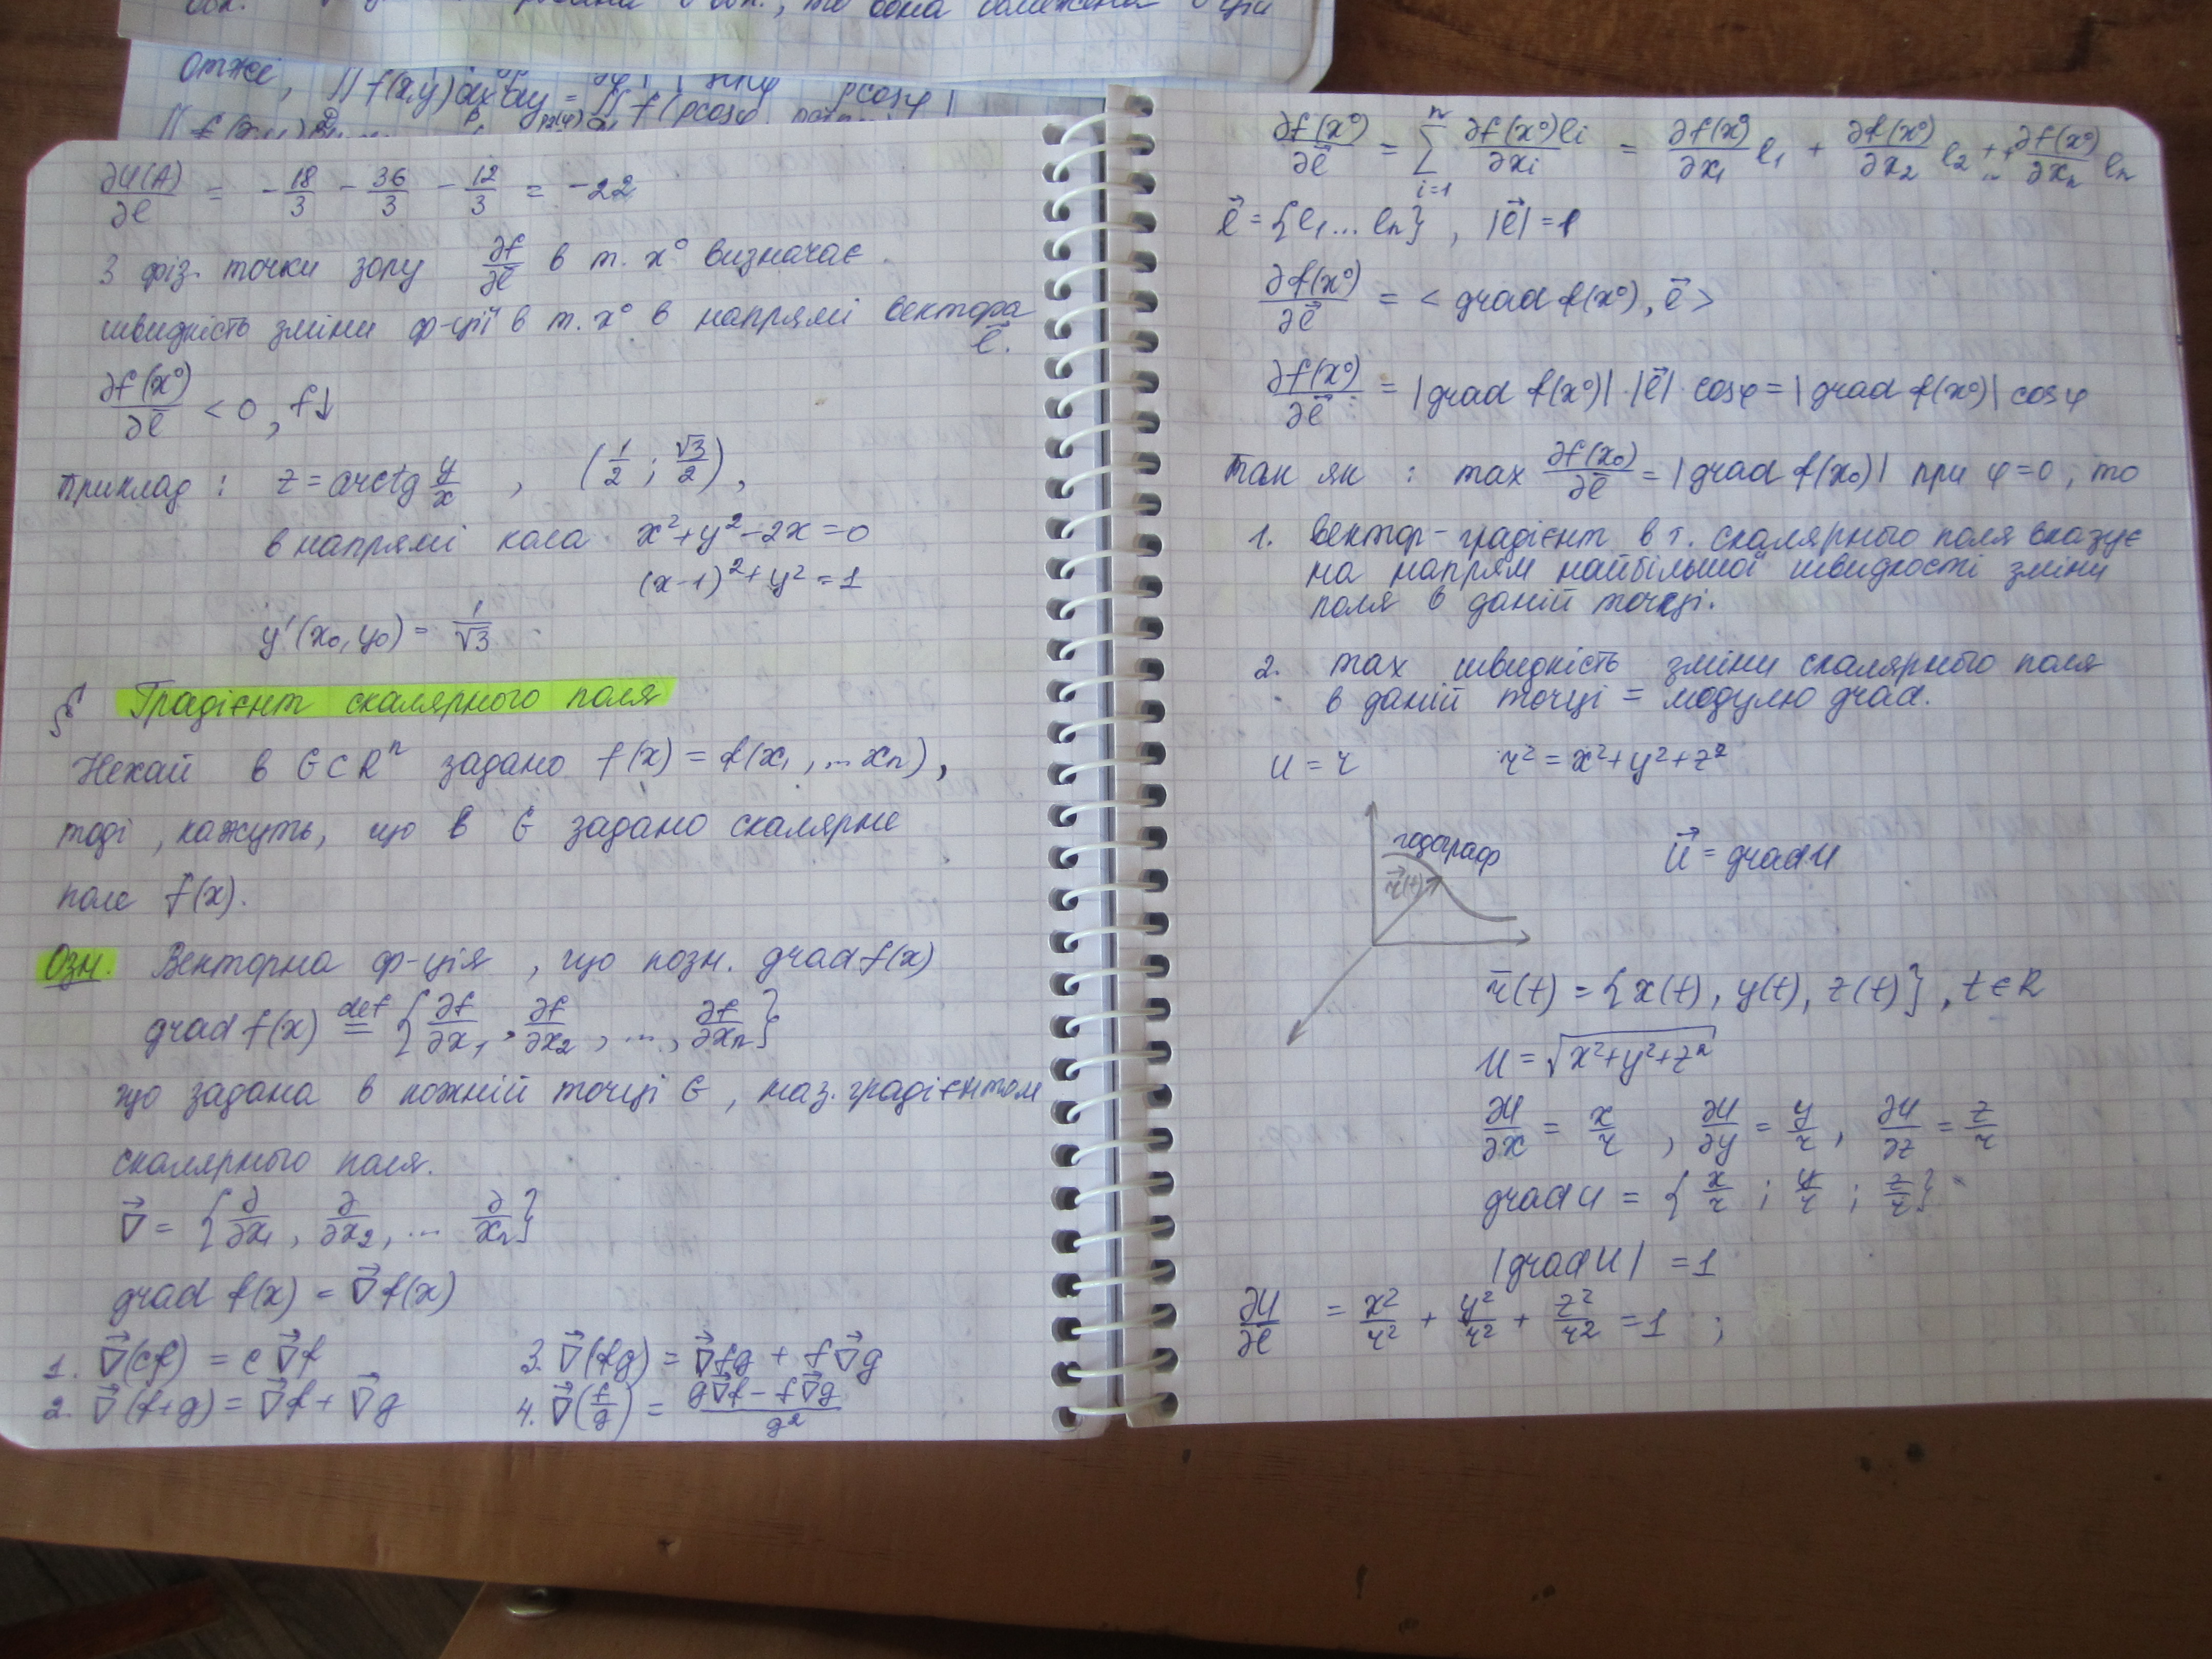 Отже, ∬ f(x,y)dxdy =
∂U(A)/∂l = -18/3 - 36/3 - 12/3 = -22
З фіз. точки зору ∂f/∂l⃗ в т. x⁰ визначає
швидкість зміни ф-ції в т. x⁰ в напрямі вектора
l⃗.
∂f(x⁰)/∂l⃗ < 0, f↓
Приклад : z = arctg y/x , (1/2 ; √3/2),
в напрямі кола x²+y²-2x=0
(x-1)²+y²=1
y'(x₀,y₀) = 1/√3
§ Градієнт скалярного поля
Нехай в G⊂Rⁿ задано f(x) = f(x₁,...xₙ),
тоді, кажуть, що в G задано скалярне
поле f(x).
Озн. Векторна ф-ція, що позн. grad f(x)
grad f(x) def= {∂f/∂x₁, ∂f/∂x₂, ..., ∂f/∂xₙ}
що задана в кожній точці G, наз. градієнтом
скалярного поля.
∇⃗ = {∂/∂x₁, ∂/∂x₂, ... ∂/xₙ}
grad f(x) = ∇⃗f(x)
1. ∇⃗(cf) = c∇⃗f 3. ∇⃗(fg) = ∇⃗fg + f∇⃗g
2. ∇⃗(f+g) = ∇⃗f + ∇⃗g 4. ∇⃗(f/g) = (g∇⃗f - f∇⃗g)/g²
∂f(x⁰)/∂l⃗ = ∑ᵢ₌₁ⁿ ∂f(x⁰)lᵢ/∂xᵢ = ∂f(x⁰)/∂x₁ l₁ + ∂f(x⁰)/∂x₂ l₂ +...+ ∂f(x⁰)/∂xₙ lₙ
l⃗ = {l₁...lₙ}, |l⃗| = 1
∂f(x⁰)/∂l⃗ = < grad f(x⁰), l⃗ >
∂f(x⁰)/∂l⃗ = |grad f(x⁰)|·|l⃗|·cosφ = |grad f(x⁰)| cosφ
Так як : max ∂f(x₀)/∂l⃗ = |grad f(x₀)| при φ=0, то
1. Вектор-градієнт в т. скалярного поля вказує
на напрям найбільшої швидкості зміни
поля в даній точці.
2. max швидкість зміни скалярного поля
в даній точці = модулю grad.
U = r r² = x²+y²+z²
годограф
r⃗(t)
U⃗ = grad U
r̄(t) = {x(t), y(t), z(t)}, t∈R
U = √(x²+y²+z²)
∂U/∂x = x/r , ∂U/∂y = y/r, ∂U/∂z = z/r
grad U = {x/r ; y/r ; z/r}
|grad U| = 1
∂U/∂l = x²/r² + y²/r² + z²/r² = 1 ;